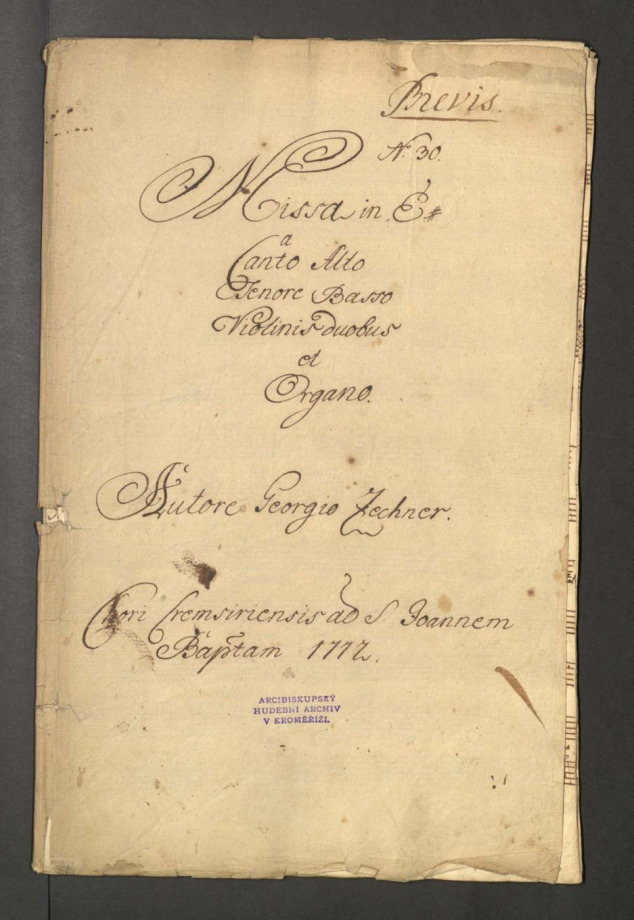 Brevis.
N: 30.
Missa in E#
a
Canto Alto
Tenore Basso
Violinis duobus
et
Organo.
Autore Georgio Zechner.
Chori Cremsiriensis ad S. Joannem
Baptam 1772.
ARCIBISKUPSKÝ
HUDEBNÍ ARCHIV
V KROMĚŘÍŽI.